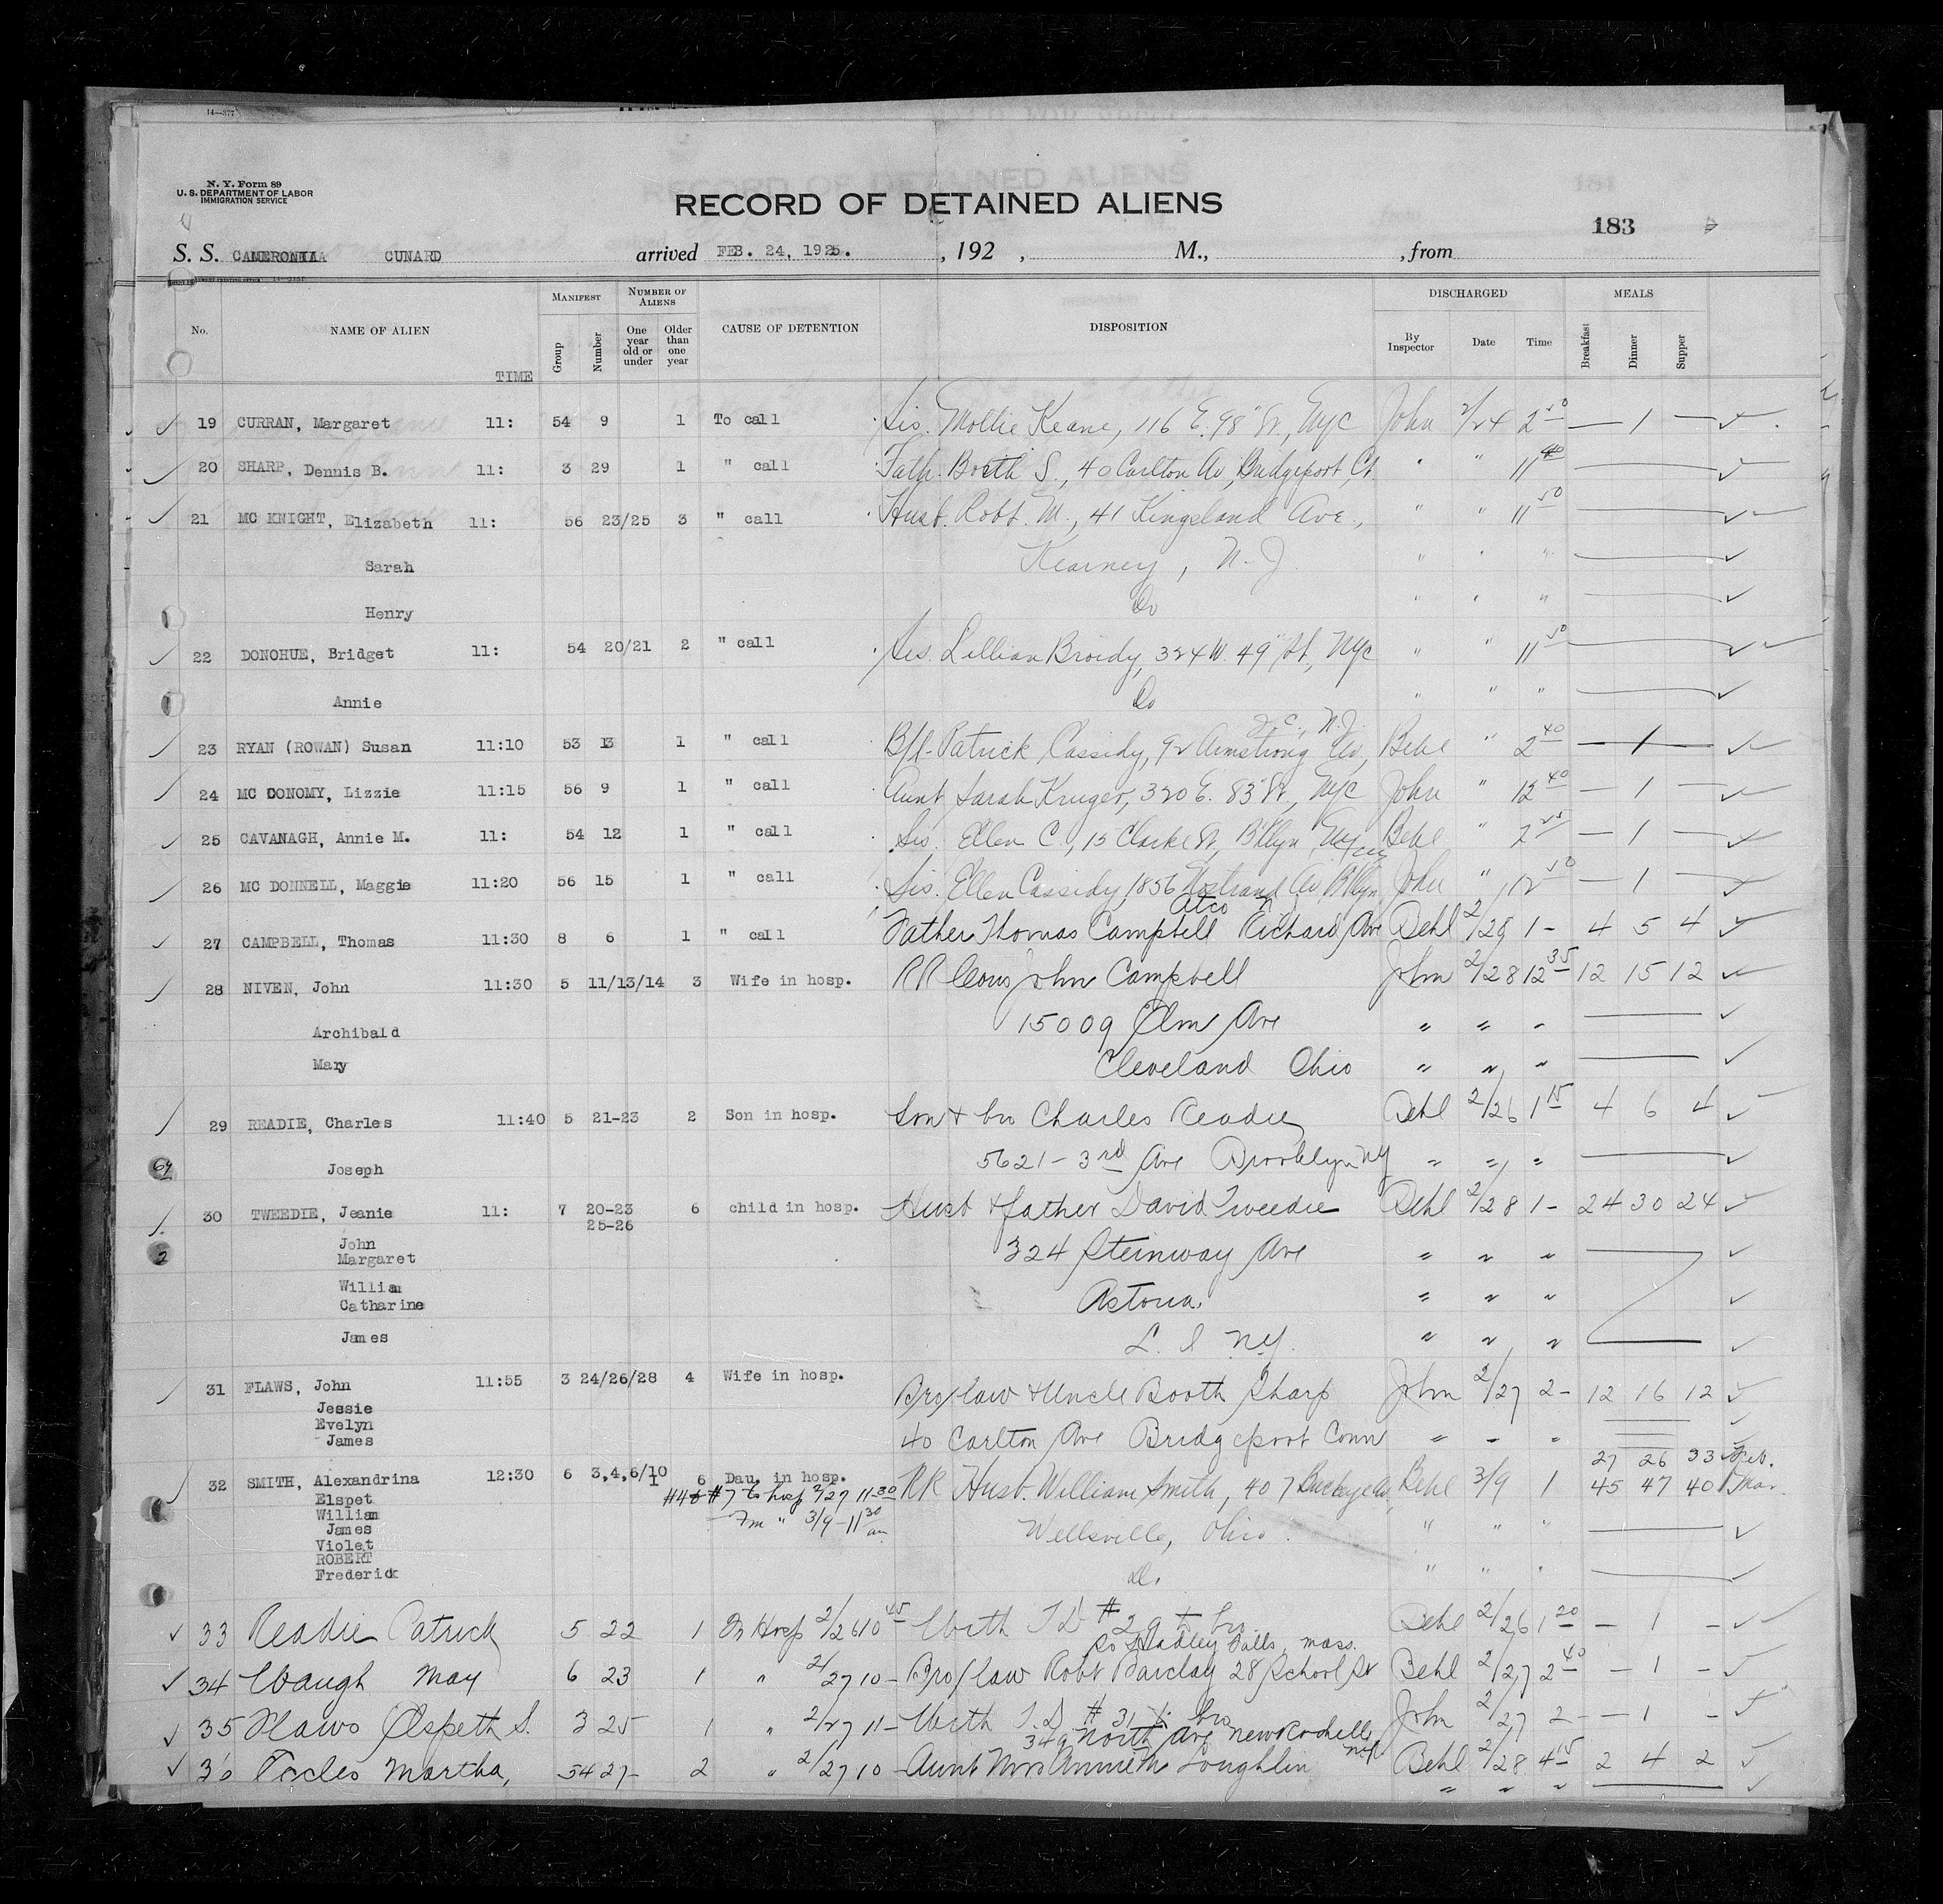 14—377
N. Y. Form 89
U. S. DEPARTMENT OF LABOR
IMMIGRATION SERVICE
RECORD OF DETAINED ALIENS
183
S. S. CAMERONIA CUNARD arrived FEB. 24, 1925. , 192 , M., , from
No. NAME OF ALIEN TIME MANIFEST Group Number NUMBER OF ALIENS One year old or under Older than one year CAUSE OF DETENTION DISPOSITION DISCHARGED By Inspector Date Time MEALS Breakfast Dinner Supper
19 CURRAN, Margaret 11: 54 9 1 To call Sis. Mollie Keane, 116 E. 98" St., NYC John 2/24 2 50 — 1 —
20 SHARP, Dennis B. 11: 3 29 1 " call Fath. Booth S., 40 Carlton Av, Bridgeport, Ct. " " 11 40
21 MC KNIGHT, Elizabeth 11: 56 23/25 3 " call Husb. Robt. M., 41 Kingsland Ave., " " 11 50
Sarah Kearney, N.J. " " "
Henry Do " " "
22 DONOHUE, Bridget 11: 54 20/21 2 " call Sis. Lillian Broidy, 324 W. 49" St, NYC " " 11 50
Annie Do " " "
J.C., N.J.
23 RYAN (ROWAN) Susan 11:10 53 13 1 " call B/l- Patrick Cassidy, 92 Armstrong Av, Behl " 2 40 — 1 —
24 MC CONOMY, Lizzie 11:15 56 9 1 " call Aunt Sarah Kruger, 320 E. 83" St, NYC John " 12 40 — 1 —
25 CAVANAGH, Annie M. 11: 54 12 1 " call Sis. Ellen C., 15 Clarke St, B'klyn, Behl " 2 — 1 —
26 MC DONNELL, Maggie 11:20 56 15 1 " call Sis. Ellen Cassidy, 1856 Nostrand Av B'klyn, John " 12 50 — 1 —
Atco
27 CAMPBELL, Thomas 11:30 8 6 1 " call Father Thomas Campbell Richard Ave Behl 2/28 1 - 4 5 4
28 NIVEN, John 11:30 5 11/13/14 3 Wife in hosp. RR Cous John Campbell John 2/28 12 35 12 15 12
Archibald 15009 Elm Ave " " "
Mary Cleveland Ohio " " "
29 READIE, Charles 11:40 5 21-23 2 Son in hosp. Son & bro Charles Readie Behl 2/26 1 15 4 6 4
Joseph 5621 - 3rd Ave Brooklyn NY " " "
30 TWEEDIE, Jeanie 11: 7 20-23 6 child in hosp. Husb & father David Tweedie Behl 2/28 1 - 24 30 24
25-26
John 324 Steinway Ave " " "
Margaret
William
Catharine Astoria, " " "
James L. I NY. " " "
31 FLAWS, John 11:55 3 24/26/28 4 Wife in hosp. Bro/law & Uncle Booth Sharp John 2/27 2 - 12 16 12
Jessie
Evelyn
James 40 Carlton Ave Bridgeport Conn " " "
27 26 33 Feb.
32 SMITH, Alexandrina 12:30 6 3,4,6/10 1 6 Dau. in hosp. RR Husb. William Smith, 407 Buckeye Av, Behl 3/9 1 45 47 40 Mar.
Elspet #7 to hosp 2/27 11-30
William Fm " 3/9 - 11 30 am
James Wellsville, Ohio. " " "
Violet
ROBERT
Frederick Do. " " "
33 Readie Patrick 5 22 1 Fm Hosp 2/26 10 45 With S D #29 to bro Behl 2/26 1 20 — 1 —
So Hadley Falls, Mass.
34 Waugh May 6 23 1 " 2/27 10 - Bro/law Robt Barclay 28 School St Behl 2/27 2 40 — 1 —
35 Flaws Elspeth S. 3 25 1 " 2/27 11 - With S.D #31 to bro John 2/27 2 - — 1 —
349 North Ave New Rochelle NY
36 Eccles Martha, 54 27- 2 " 2/27 10 - Aunt Mrs Annie Mc Loughlin Behl 2/28 4 15 2 4 2
" " "